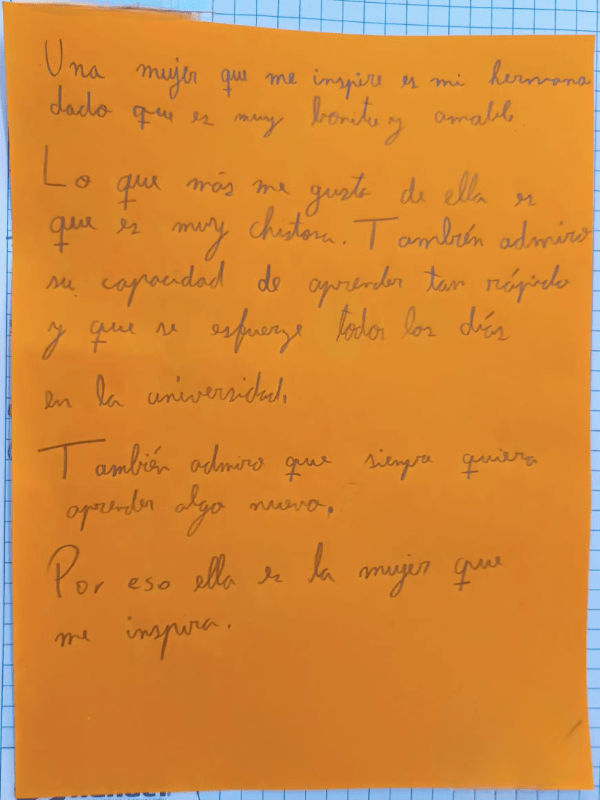 Una mujer que me inspire es mi hermana
dado que es muy bonita y amable
Lo que más me gusta de ella es
que es muy chistosa. También admiro
su capacidad de aprender tan rápido
y que se esfuerze todos los días
en la universidad.
También admiro que siempre quiera
aprender algo nuevo.
Por eso ella es la mujer que
me inspira.